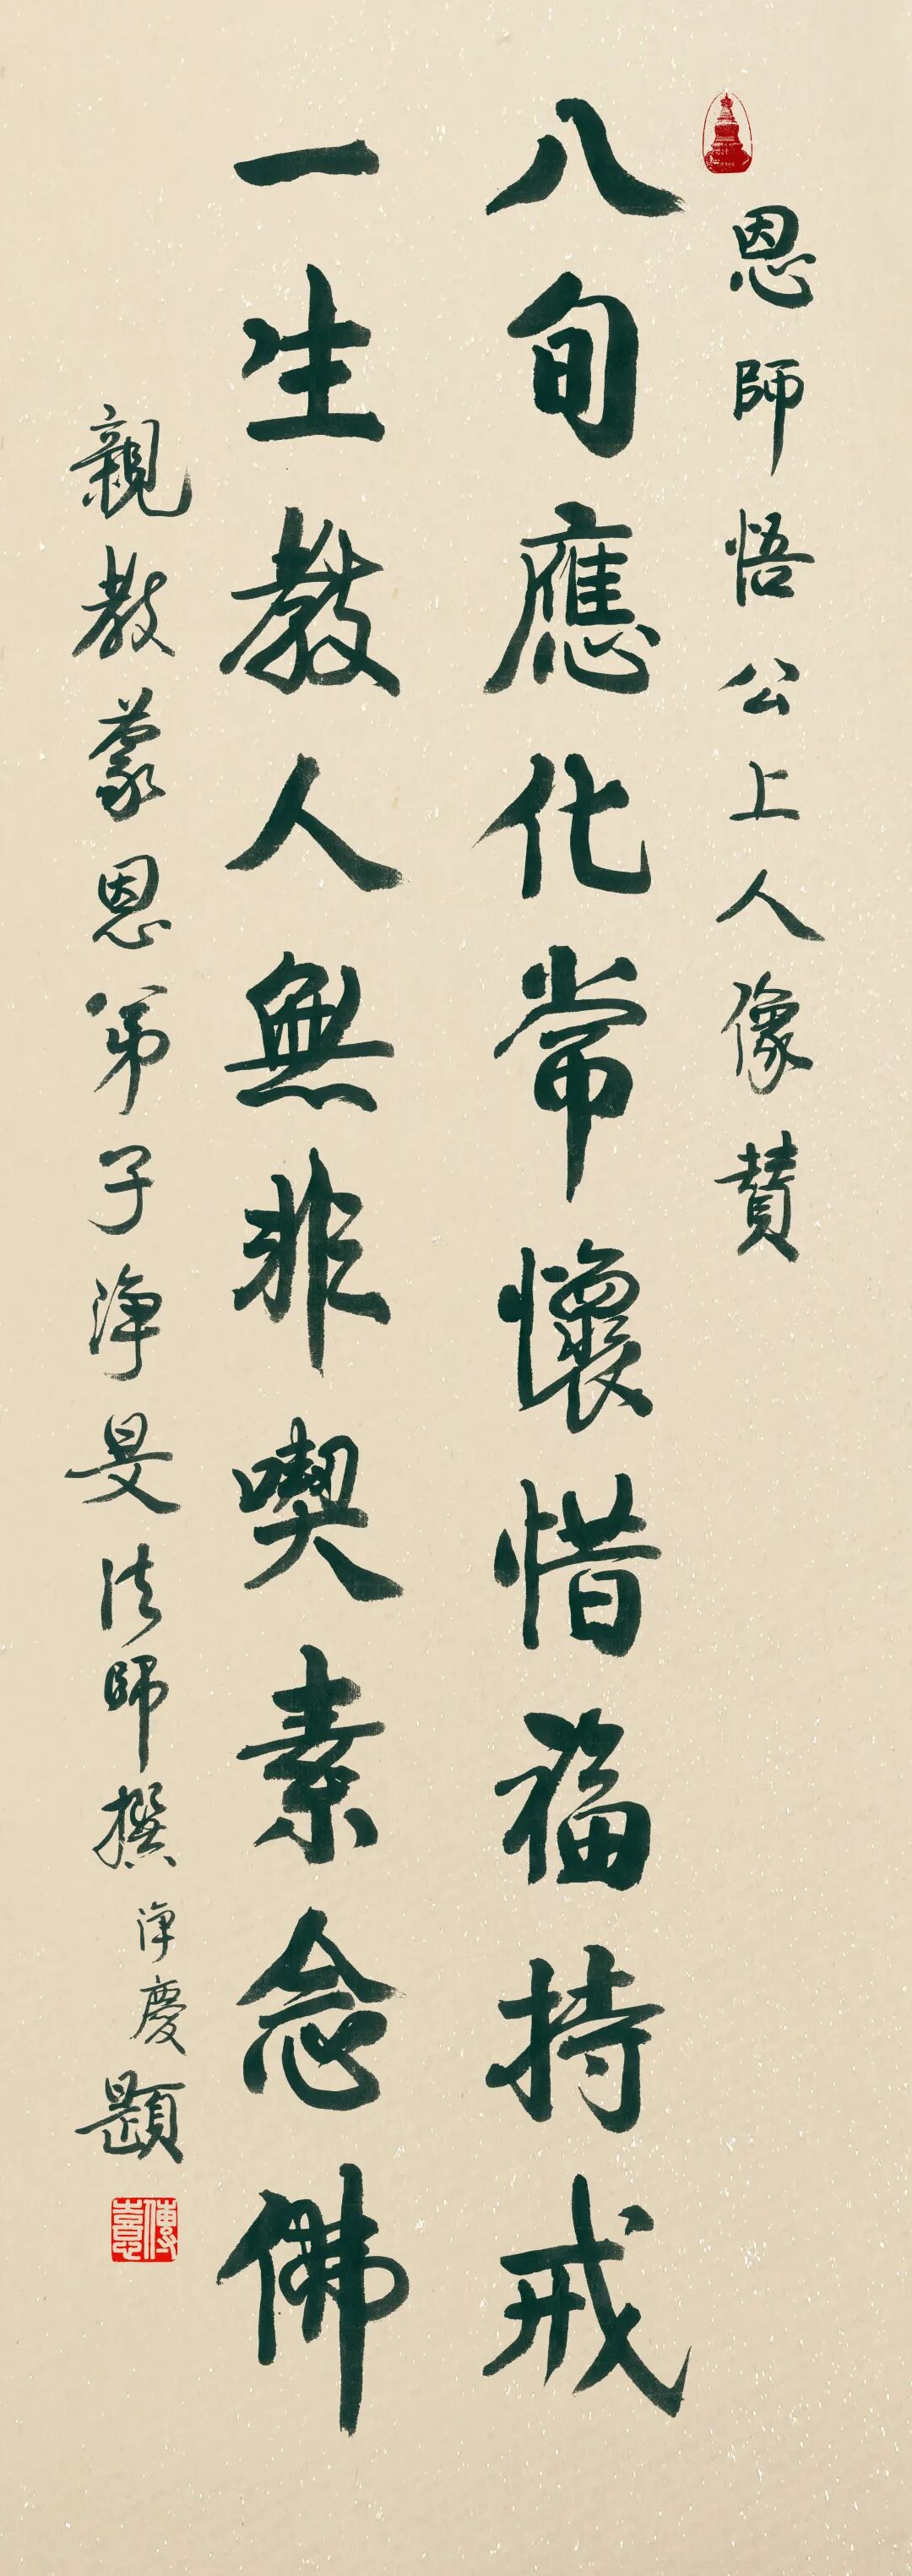 恩師悟公上人像贊
八旬應化常懷惜福持戒
一生教人無非喫素念佛
親教蒙恩弟子淨旻法師撰淨慶題
傳喜